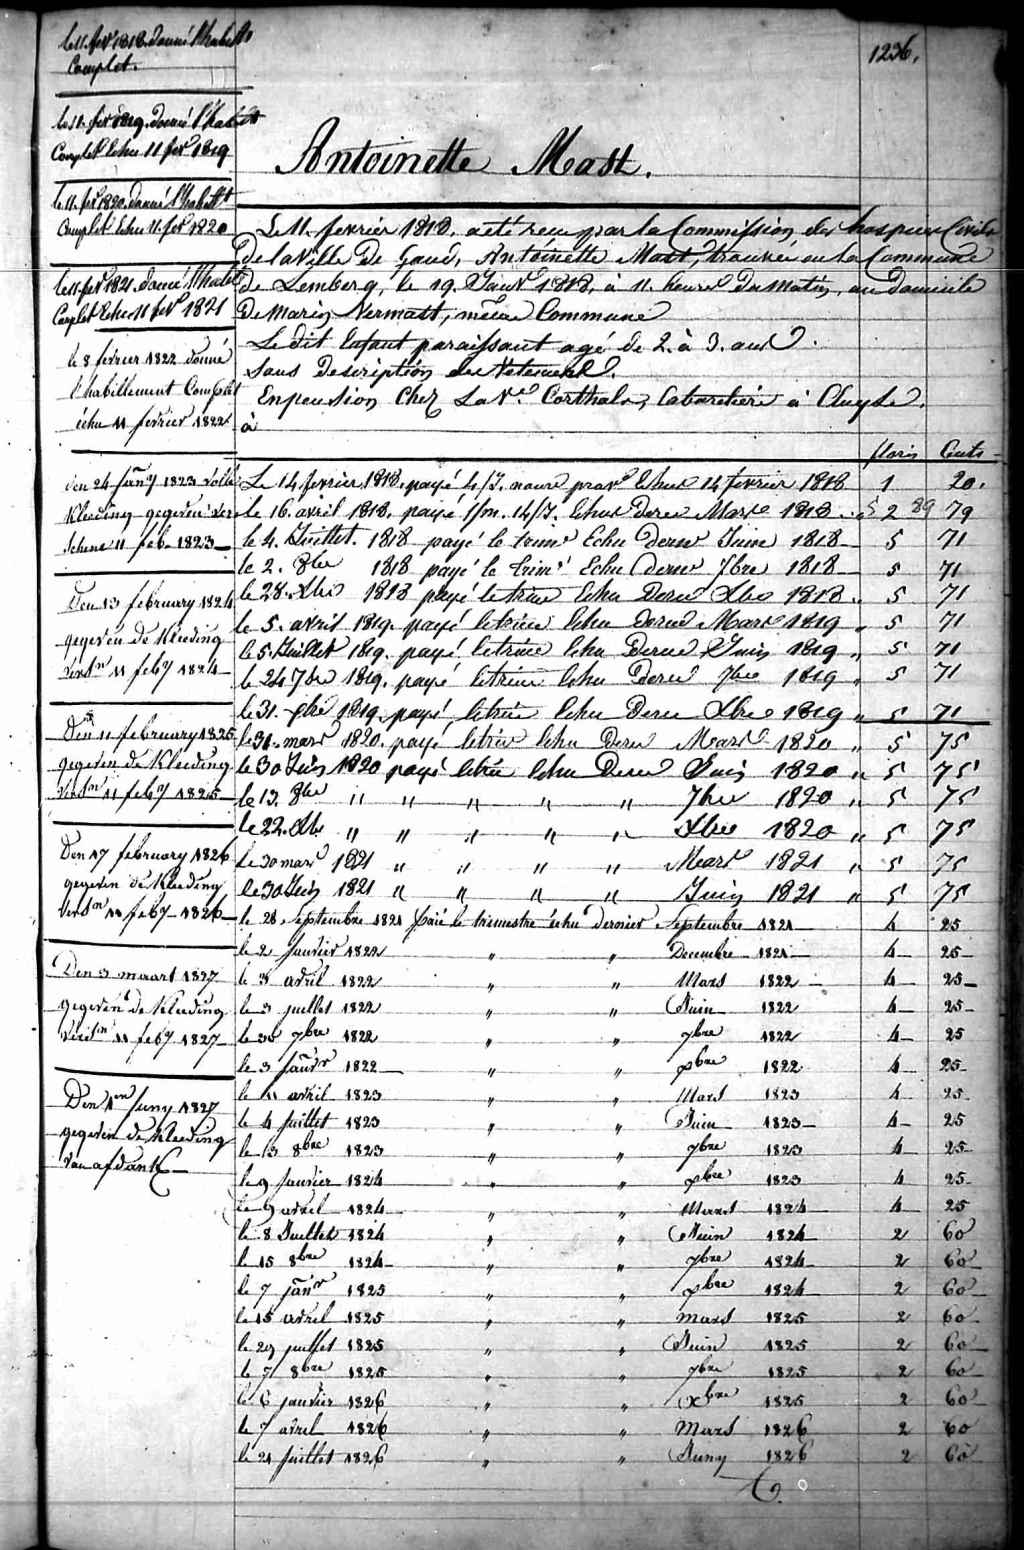 1236.
le 11. fevr 1818. donné l'habillt
Complet.
le 11. fevr 1819. donné l'habillt
Complet Echu 11 fevr 1819
le 11. fevr 1820. donné l'habillt
Complet Echu 11. fevr 1820
le 11. fevr 1821. donné l'habillt
Complet Echu 11 fevr 1821
le 8 fevrier 1822 donné
l'habillement Complet
échu 11 fevrier 1822
den 24 janry 1823 volle
Kleeding gegeven ver
schene 11 feb. 1823
Den 13 february 1824
gegeven de Kleeding
versn 11 feby 1824
Den 11 february 1825
gegeven de Kleeding
versn 11 feby 1825
Den 17 february 1826
gegeven de Kleeding
versn 11 feby 1826
Den 3 maart 1827
gegeven de Kleeding
versn 11 feby 1827
Den 1en juny 1827
gegeven de Kleeding
van afdank
Antoinette Mast.
Le 11. fevrier 1818. a été reçu par la Commission des hospices Civils
De la Ville De Gand, Antoinette Mast, trouvée en la Commune
de Lemberg, le 19. Janvr 1818, à 11. heures Du Matin, au domicile
De Marin Vermast, même Commune
Le dit Enfant paraissant agé de 2. à 3. ans.
Sans Description de Vetement.
En pension Chez La Ve. Corthals, Cabaretière à Cluyse.
à
florin Cents
Le 14. fevrier 1818. payé 4/J. Echus 14 fevrier 1818 1 20.
le 16. avril 1818. payé 1/m. 14/J. Echus Dernr Mars 1818 2 89 79
le 4. Juillet. 1818 payé le trimr Echu Dernr Juin 1818 5 71
le 2. 8bre 1818 payé le trimr Echu Dernr 7bre 1818 5 71
le 28. Xbre 1818 payé le trim Echu Dernr Xbre 1818 5 71
le 5. avril 1819. payé le trim Echu Dernr Mars 1819 " 5 71
le 5. Juillet 1819. payé le trim Echu Dernr Juin 1819 " 5 71
le 24 7bre 1819. payé le trim Echu Dernr 7bre 1819 " 5 71
le 31. Xbre 1819. payé le trim Echu Dernr Xbre 1819 " 5 71
le 31. mars 1820. payé le trim Echu Dernr Mars 1820 " 5 75
le 30 Juin 1820 payé le trim Echu Dernr Juin 1820 " 5 75
le 13. 8bre " " " " " 7bre 1820 " 5 75
le 22. Xbr " " " " " Xbre 1820 " 5 75
le 30 mars 1821 " " " " Mars 1821 " 5 75
le 30 Juin 1821 " " " " Juin 1821 " 5 75
le 28 Septembre 1821 Paié le trimestre échu dernier Septembre 1821 4 25
le 2 Janvier 1822 " " Decembre 1821 4 25
le 3 avril 1822 " " Mars 1822 4 25
le 3 juillet 1822 " " Juin 1822 4 25
le 30 7bre 1822 " " 7bre 1822 4 25
le 3 janvr 1822 " " Xbre 1822 4 25
le 11 avril 1823 " " Mars 1823 4 25
le 4 juillet 1823 " " Juin 1823 4 25
le 13 8bre 1823 " " 7bre 1823 4 25
le 9 janvier 1824 " " Xbre 1823 4 25
le 9 avril 1824 " " Mars 1824 4 25
le 8 Juillet 1824 " " Juin 1824 2 60
le 15 8bre 1824 " " 7bre 1824 2 60
le 7 janvr 1825 " " Xbre 1824 2 60
le 15 avril 1825 " " Mars 1825 2 60
le 29 juillet 1825 " " Juin 1825 2 60
le 7 8bre 1825 " " 7bre 1825 2 60
le 6 janvier 1826 " " Xbre 1825 2 60
le 7 avril 1826 " " Mars 1826 2 60
le 21 juillet 1826 " " Juny 1826 2 60